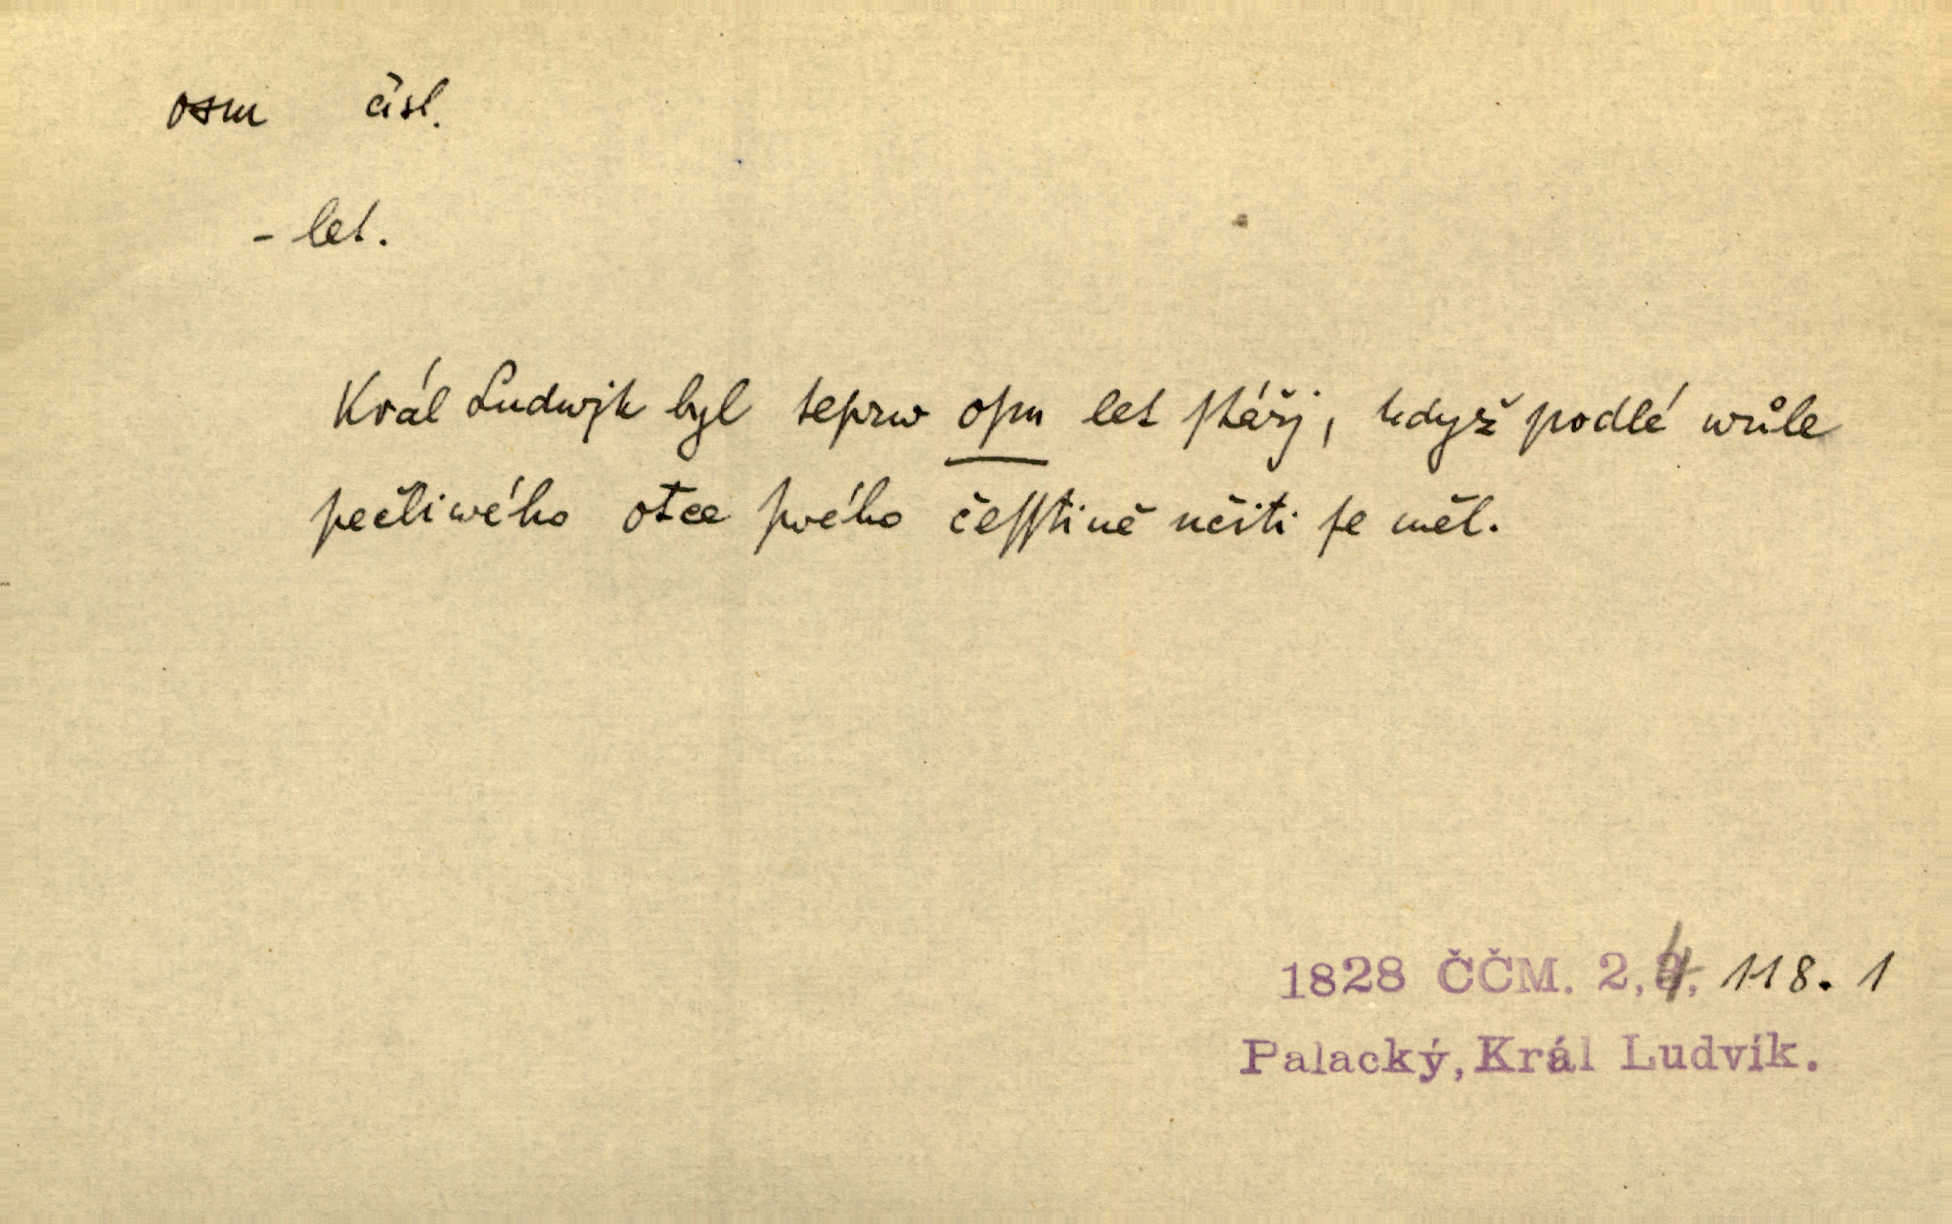 osm čísl.
- let.
Král Ludwjk byl teprw oſm let ſtářj, když podlé wůle
pečliwého otce ſwého čeſſtině učiti ſe měl.
1828 ČČM. 2,4, 118. 1
Palacký, Král Ludvík.